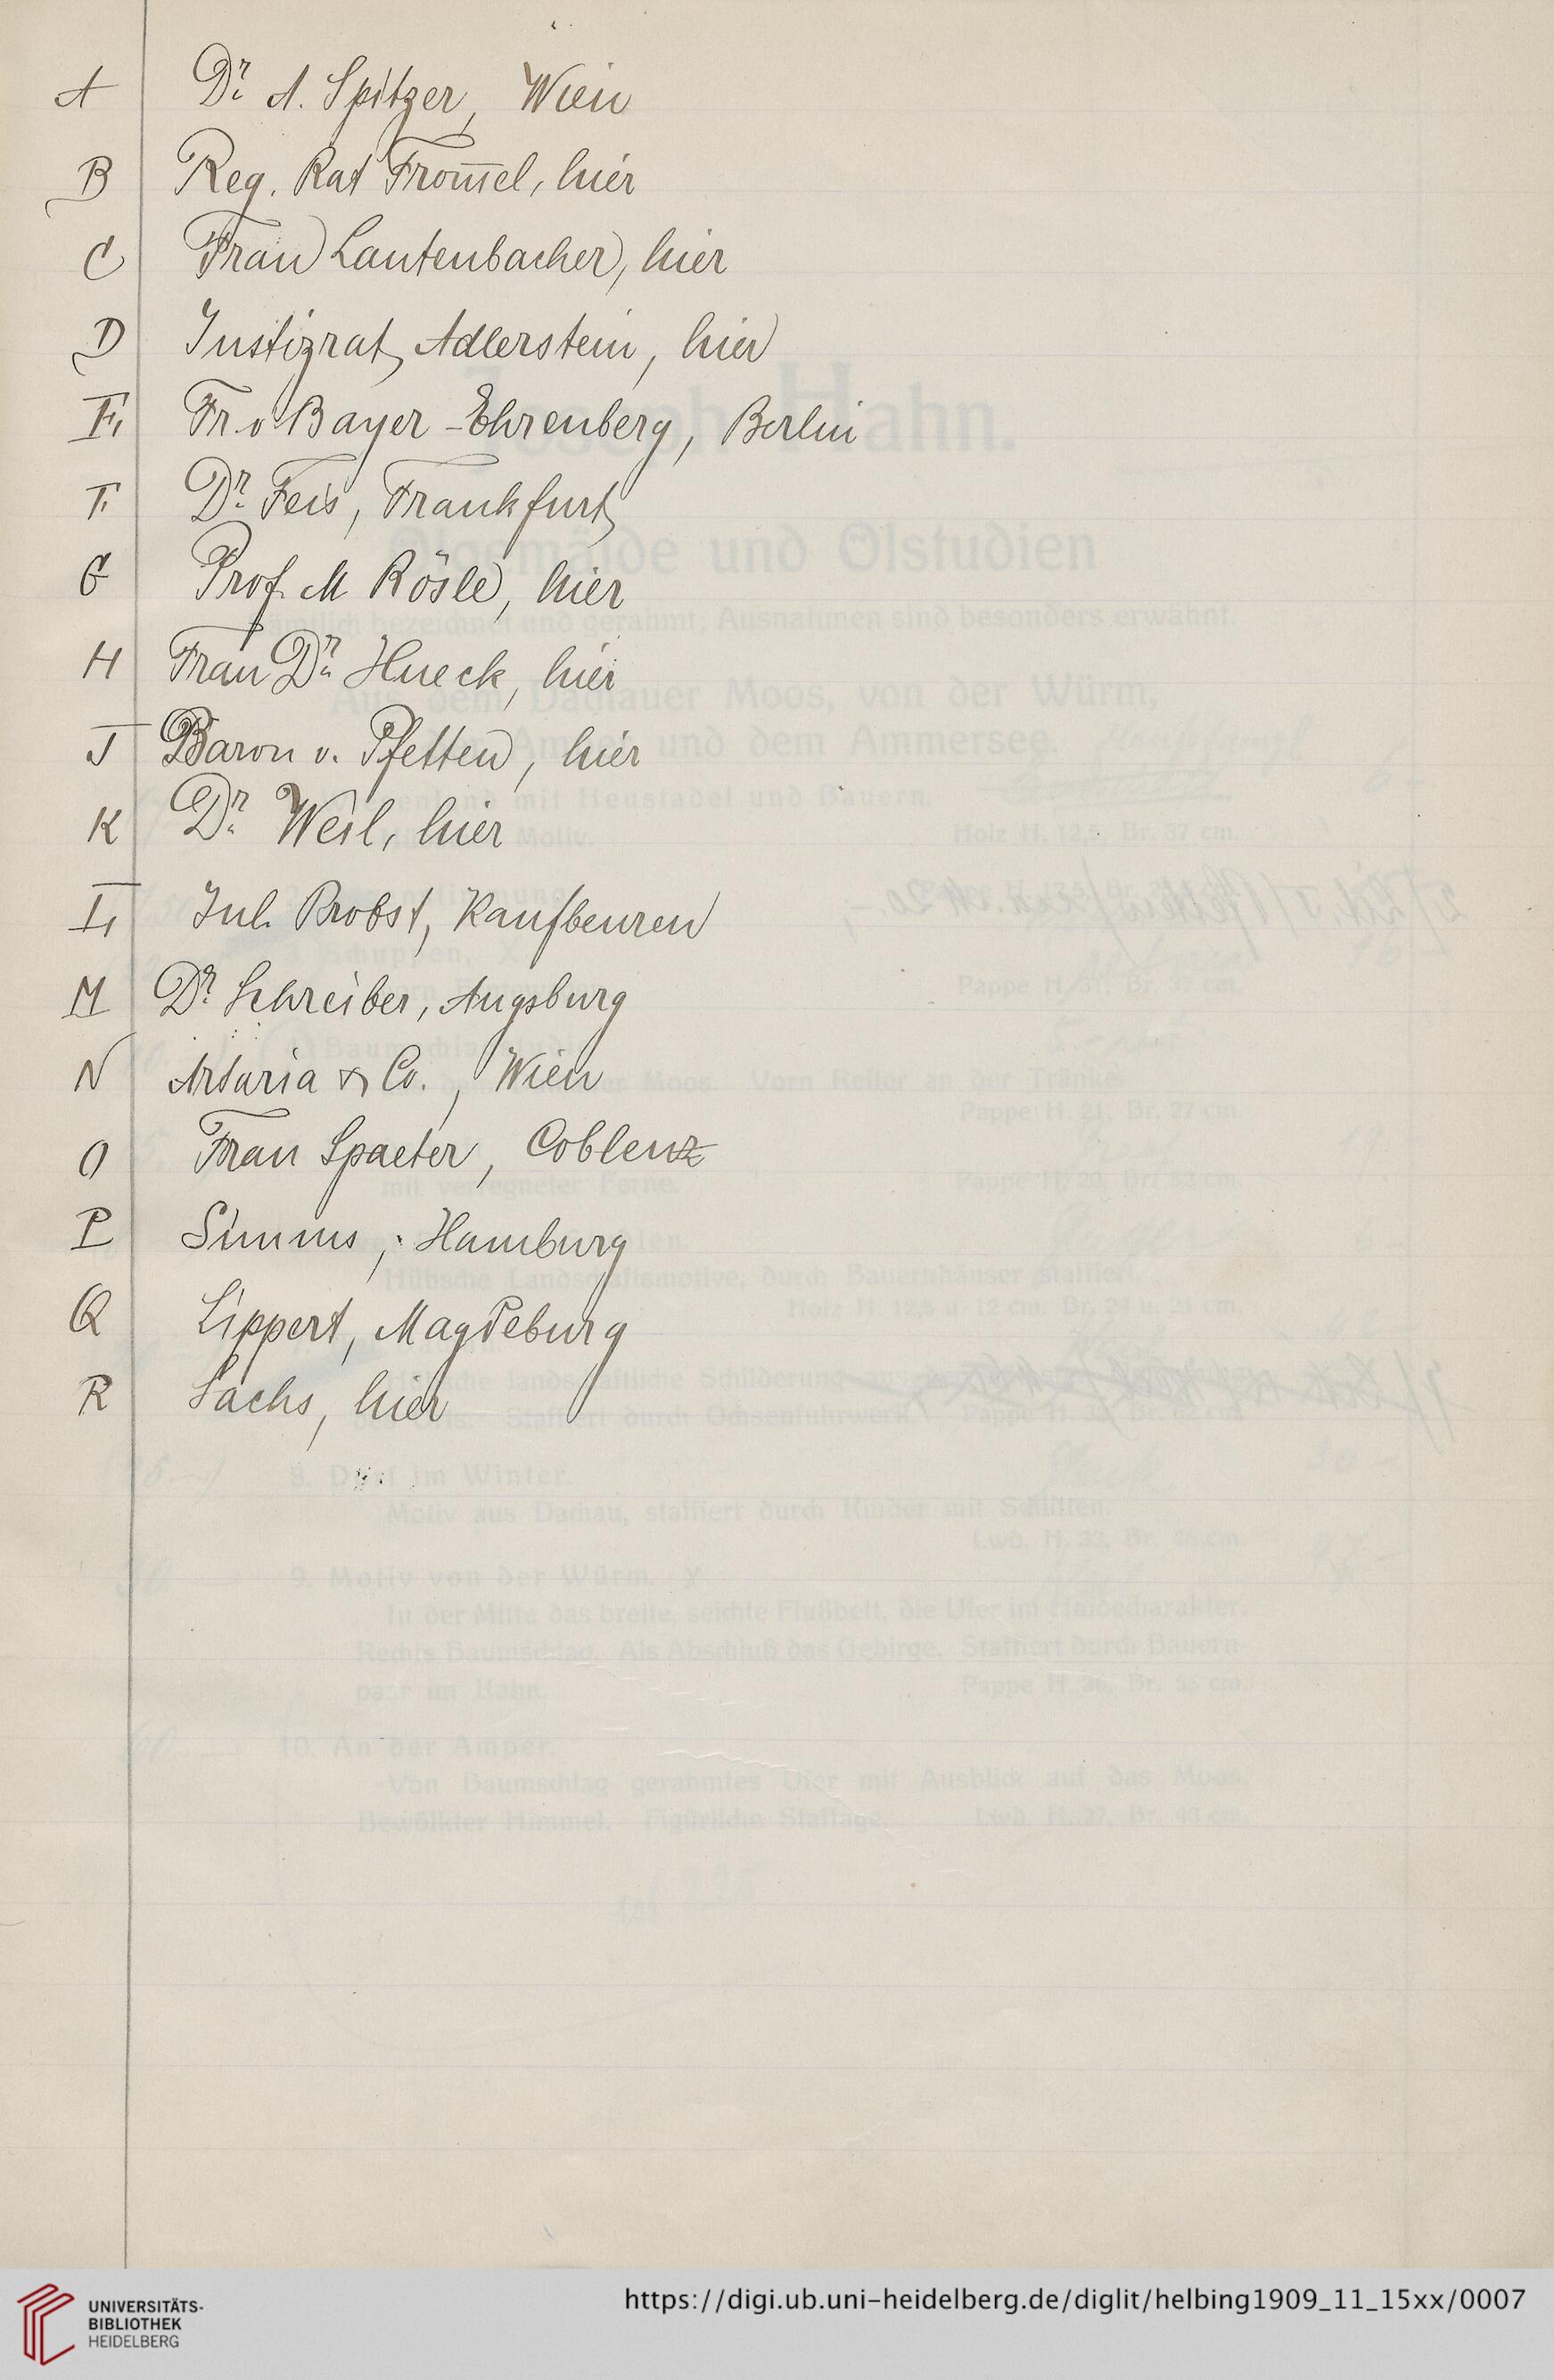 A Dr. A. Spitzer, Wien
B Reg. Rat From̅el, hier
C Frau Lautenbacher, hier
D Justizrat Adlerstein, hier
E Fr. v Bayer-Ehrenberg, Berlin
F Dr. Feis, Frankfurt
G Prof. M Rösle, hier
H Frau Dr. Hueck, hier
J Baron v. Pfetten, hier
K Dr. Weil, hier
L Jul. Probst, Kaufbeuren
M Dr. Schreiber, Augsburg
N Artaria & Co., Wien
O Frau Spaeter, Coblenz
P Simms, Hamburg
Q Lippert, Magdeburg
R Sachs, hier
UNIVERSITÄTS-
BIBLIOTHEK
HEIDELBERG
https://digi.ub.uni-heidelberg.de/diglit/helbing1909_11_15xx/0007